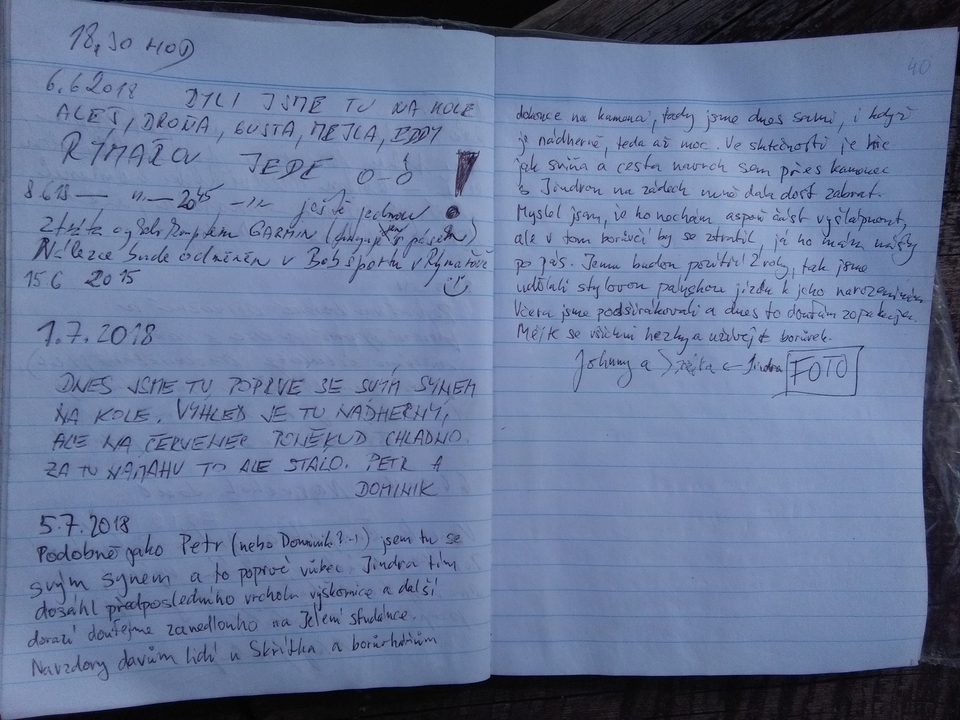 18,30 HOD
6.6 2018 BYLI JSME TU NA KOLE
ALEŠ, DROŇA, GUSTA, MEJLA, EDDY
RÝMAŘOV JEDE !
8.6.18 — 20 45 ještě jednou
Ztráta GARMIN
Nálezce bude odměněn v Bobsportu v Rýmařově
15.6 2015
1.7.2018
DNES JSME TU POPRVE SE SVÝM SYNEM
NA KOLE. VÝHLED JE TU NÁDHERNÝ,
ALE NA ČERVENEC PONĚKUD CHLADNO.
ZA TU NÁMAHU TO ALE STÁLO. PETR A
DOMINIK
5.7.2018
Podobně jako Petr (nebo Dominik? :-) jsem tu se
svým synem a to poprvé vůbec. Jindra tím
dosáhl předposledního vrcholu výškovnice a další
dorazí doufejme zanedlouho na Jelení studánce.
Navzdory davům lidí u Skřítka a borůvkářům
40
dokonce na kamenci, tady jsme dnes sami, i když
je nádherně, teda až moc. Ve skutečnosti je hic
jak sviňa a cesta navrch sem přes kamenec
s Jindrou na zádech mně dala dost zabrat.
Myslel jsem, že ho nechám aspoň část vyšlápnout,
ale v tom borůvčí by se ztratil, já ho mám místy
po pás. Jemu budou pozítří 2 roky, tak jsme
udělali stylovou jízdu k jeho narozeninám.
Včera jsme podširákovali a dnes to doufám zopakujem.
Mějte se všichni hezky a užívejte borůvek.
Johnny a Jindra FOTO